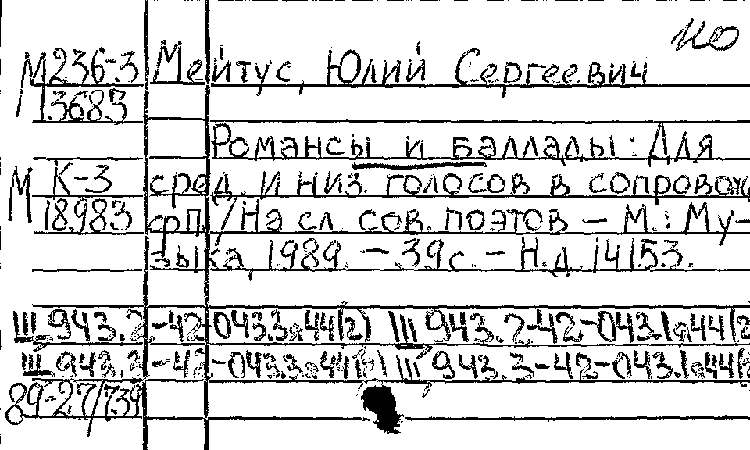 но
М 236-3 Мейтус, Юлий Сергеевич
13683
Романсы и баллады: Для
М К-3 сред. и низ. голосов в сопровож
18983 ф-п. / На сл. сов. поэтов – М.: Му-
зыка, 1989. – 39 с. – Н.д. 14153.
Ш 943.2-42-043.3я44(2) Ш 943.2-42-043.1я44(2
Ш 943.3-42-043.3я44 Ш 943.3-42-043.1я44(2
89-27/739